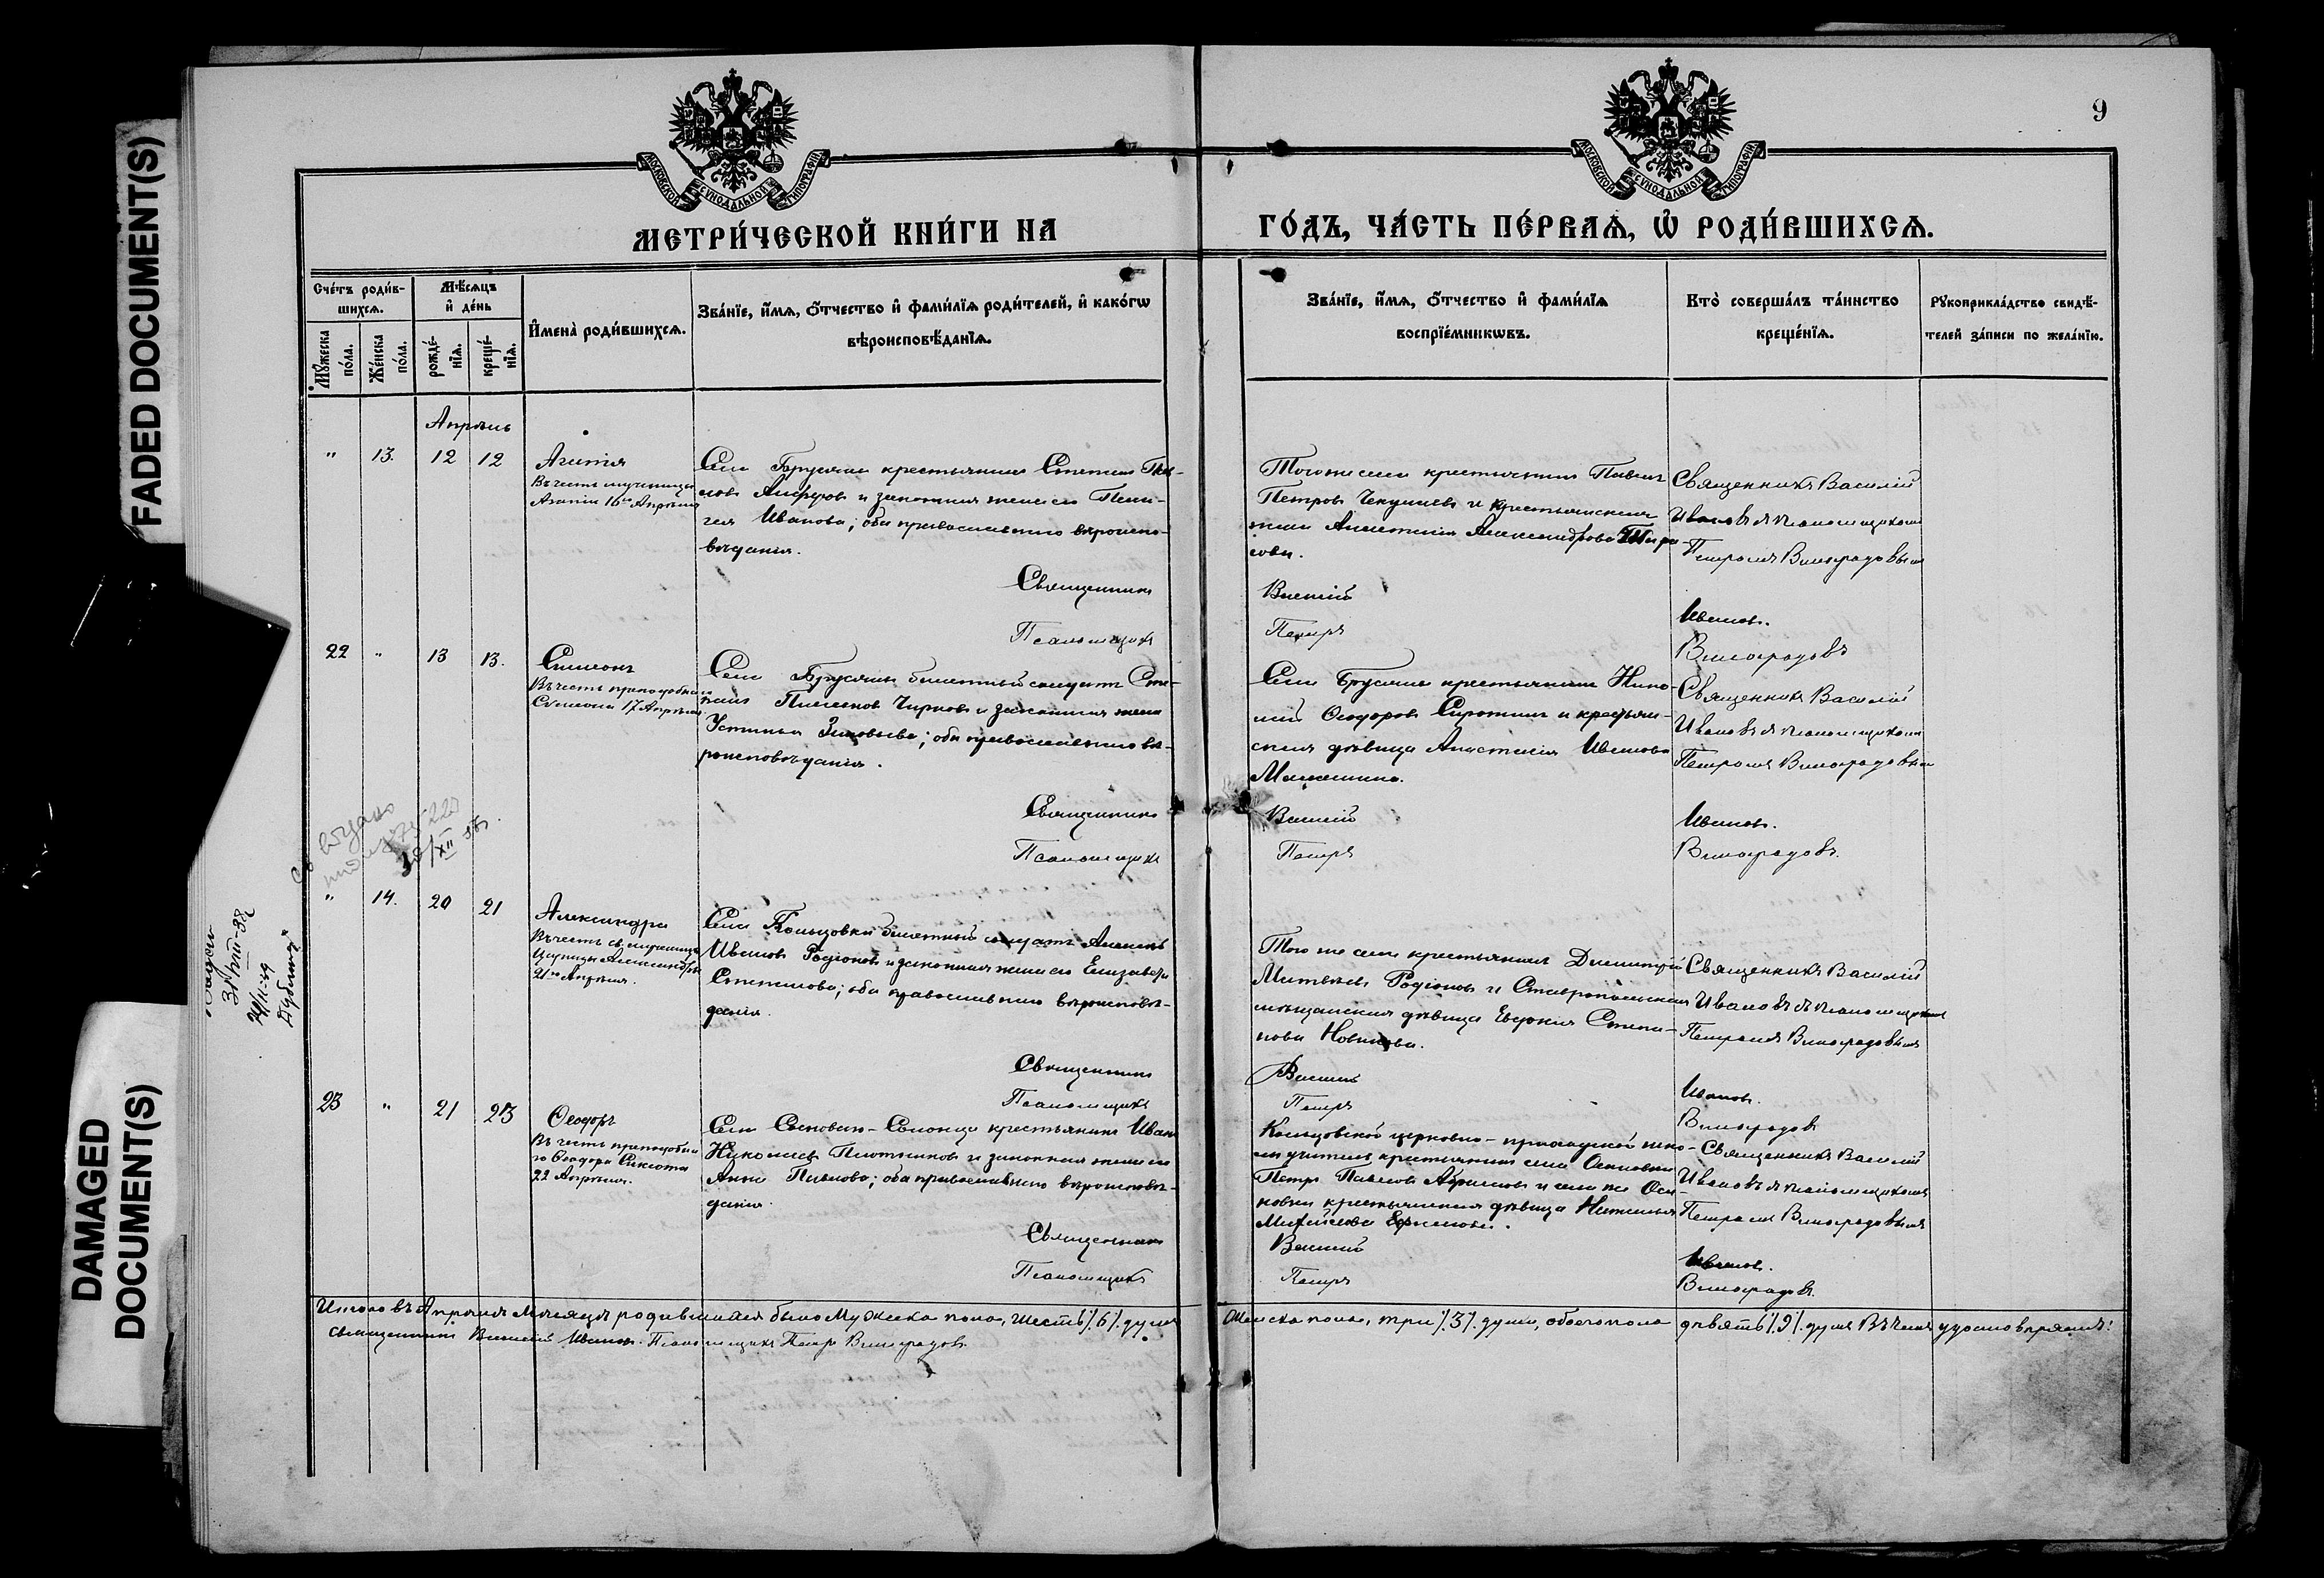 FADED DOCUMENT(S)
DAMAGED
DOCUMENT(S)
9
МОСКОВСКОЙ СѴНОДАЛЬНОЙ ТИПОГРАФІИ
МОСКОВСКОЙ СѴНОДАЛЬНОЙ ТИПОГРАФІИ
МЕТРИ́ЧЕСКОЙ КНИ́ГИ НА
ГО́ДЪ, ЧА́СТЬ ПЕ́РВАѦ, Ѡ҆ РОДИ́ВШИХСѦ.
Сче́тъ роди́в-
шихсѧ.
Мꙋ́жеска
по́ла.
Же́нска
по́ла.
Мѣ́сѧцъ
и҆ де́нь
рожде́-
нїѧ.
креще́-
нїѧ.
И҆мена̀ роди́вшихсѧ.
Зва́нїе, и҆́мѧ, ѻ҆́тчество и҆ фами́лїѧ роди́телей, и҆ како́гѡ
вѣроисповѣ́данїѧ.
Зва́нїе, и҆́мѧ, ѻ҆́тчество и҆ фами́лїѧ
воспрїе́мникѡвъ.
Кто̀ соверша́лъ та́инство
креще́нїѧ.
Рꙋкоприкла́дство свидѣ́-
телей за́писи по жела́нїю.
Апрѣль
" 13. 12 12
Агапія
Въ честь мученицы
Агапіи 16го Апрѣля
Села Брусяны крестьянинъ Степанъ Пав-
ловъ и законная жена его Пела-
гея Иванова; оба православнаго вѣроиспо-
вѣданія.
Священникъ
Псаломщикъ
Того же села крестьянинъ Павелъ
Петровъ и крестьянская
жена Анастасія Александрова
Василій
Петръ
Священникъ Василій
Ивановъ съ псаломщикомъ
Петромъ Виноградовымъ
Ивановъ.
Виноградовъ
22 " 13 13.
Симеонъ
Въ честь преподобнаго
Симеона 17 Апрѣля.
Села Брусяны билетный солдатъ Сте-
панъ Чирковъ и законная жена
Устинья Зиновьева; оба православнаго вѣ-
роисповѣданія.
Священникъ
Псаломщикъ
Села Брусяны крестьянинъ Нико-
лай Ѳеодоровъ Сиротинъ и крестьян-
ская дѣвица Анастасія Иванова
Василій
Петръ
Священникъ Василій
Ивановъ съ псаломщикомъ
Петромъ Виноградовымъ
Ивановъ.
Виноградовъ.
" 14. 20 21
Александра
Въ честь св. мученицы
Царицы Александры
21го Апрѣля.
Села Кольцовки билетный солдатъ
Ивановъ Родіоновъ и законная жена его Елизавета
Степанова; оба православнаго вѣроисповѣ-
данія.
Священникъ
Псаломщикъ
Того же села крестьянинъ Димитрій
Матвѣевъ Родіоновъ и Ставропольская
мѣщанская дѣвица Евдокія Степа-
нова Новикова.
Василій
Петръ
Священникъ Василій
Ивановъ съ псаломщикомъ
Петромъ Виноградовымъ
Ивановъ.
Виноградовъ
31/VIII-38
23 " 21 23
Ѳеодоръ
Въ честь преподобна-
го Ѳеодора Сикеота
22 Апрѣля.
Села Сосновый-Солонецъ крестьянинъ Иванъ
Николаевъ Плотниковъ и законная жена его
Анна Павлова; оба православнаго вѣроисповѣ-
данія.
Священникъ
Псаломщикъ
Кольцовской церковно-приходской шко-
лы учитель крестьянинъ села Осиновки
Петръ Павловъ Абрамовъ и села же Оси-
новки крестьянская дѣвица Наталья
Василій
Петръ
Священникъ Василій
Ивановъ съ псаломщикомъ
Петромъ Виноградовымъ
Ивановъ.
Виноградовъ.
Итого въ Апрѣлѣ мѣсяцѣ родившихся было Мужеска пола, шесть /.6/. душъ Женска пола, три /.3/. души, обоего пола девять /.9/. душъ Въ чемъ удостовѣряемъ:
Священникъ Василій Ивановъ. Псаломщикъ Петръ Виноградовъ.